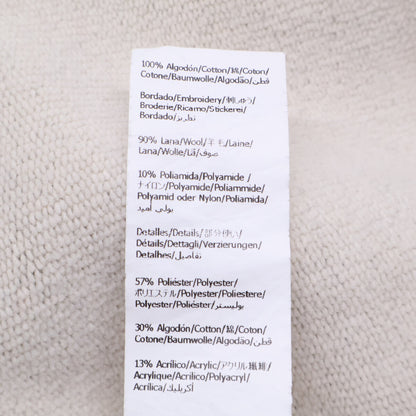 100% Algodón/Cotton/綿/Coton/
Cotone/Baumwolle/Algodão/قطن
Bordado/Embroidery/刺しゅう/
Broderie/Ricamo/Stickerei/
Bordado/تطريز
90% Lana/Wool/羊毛/Laine/
Lana/Wolle/Lã/صوف
10% Poliamida/Polyamide/
ナイロン/Polyamide/Poliammide/
Polyamid oder Nylon/Poliamida/
بولي أميد
Detalles/Details/部分使い/
Détails/Dettagli/Verzierungen/
Detalhes/تفاصيل
57% Poliéster/Polyester/
ポリエステル/Polyester/Poliestere/
Polyester/Poliéster/بوليستر
30% Algodón/Cotton/綿/Coton/
Cotone/Baumwolle/Algodão/قطن
13% Acrílico/Acrylic/アクリル繊維/
Acrylique/Acrilico/Polyacryl/
Acrílica/أكريليك